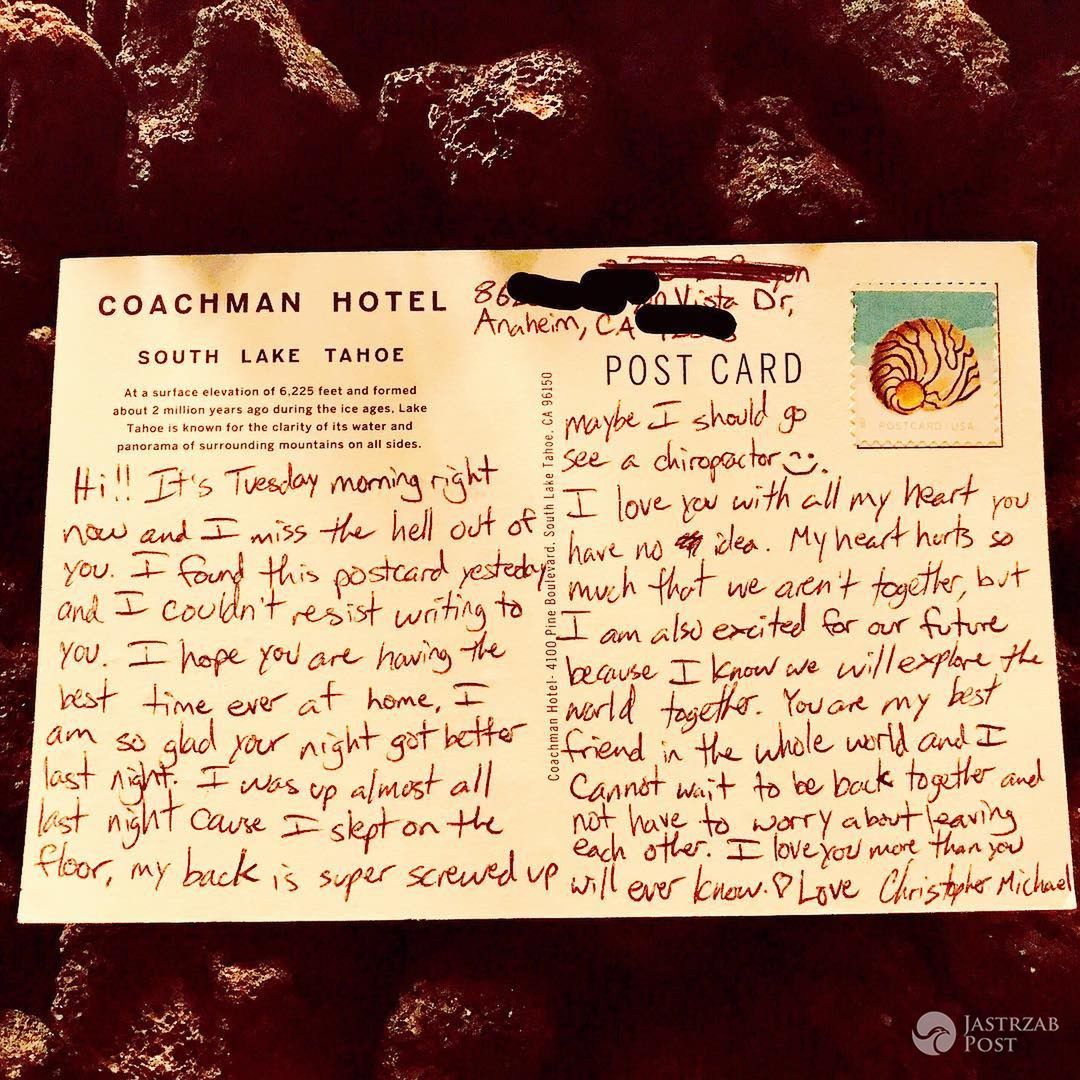 COACHMAN HOTEL
SOUTH LAKE TAHOE
At a surface elevation of 6,225 feet and formed
about 2 million years ago during the ice ages, Lake
Tahoe is known for the clarity of its water and
panorama of surrounding mountains on all sides.
Hi!! It's Tuesday morning right
now and I miss the hell out of
you. I found this postcard yesteday
and I couldn't resist writing to
you. I hope you are having the
best time ever at home, I
am so glad your night got better
last night. I was up almost all
last night cause I slept on the
floor, my back is super screwed up
Coachman Hotel- 4100 Pine Boulevard, South Lake Tahoe, CA 96150
86
Vista Dr,
Anaheim, CA
POST CARD
POSTCARD/USA
maybe I should go
see a chiropractor
I love you with all my heart you
have no idea. My heart hurts so
much that we aren't together, but
I am also excited for our future
because I know we will explore the
world together. You are my best
friend in the whole world and I
Cannot wait to be back together and
not have to worry about leaving
each other. I love you more than you
will ever know. ♡ Love Christopher Michael
JASTRZAB
POST